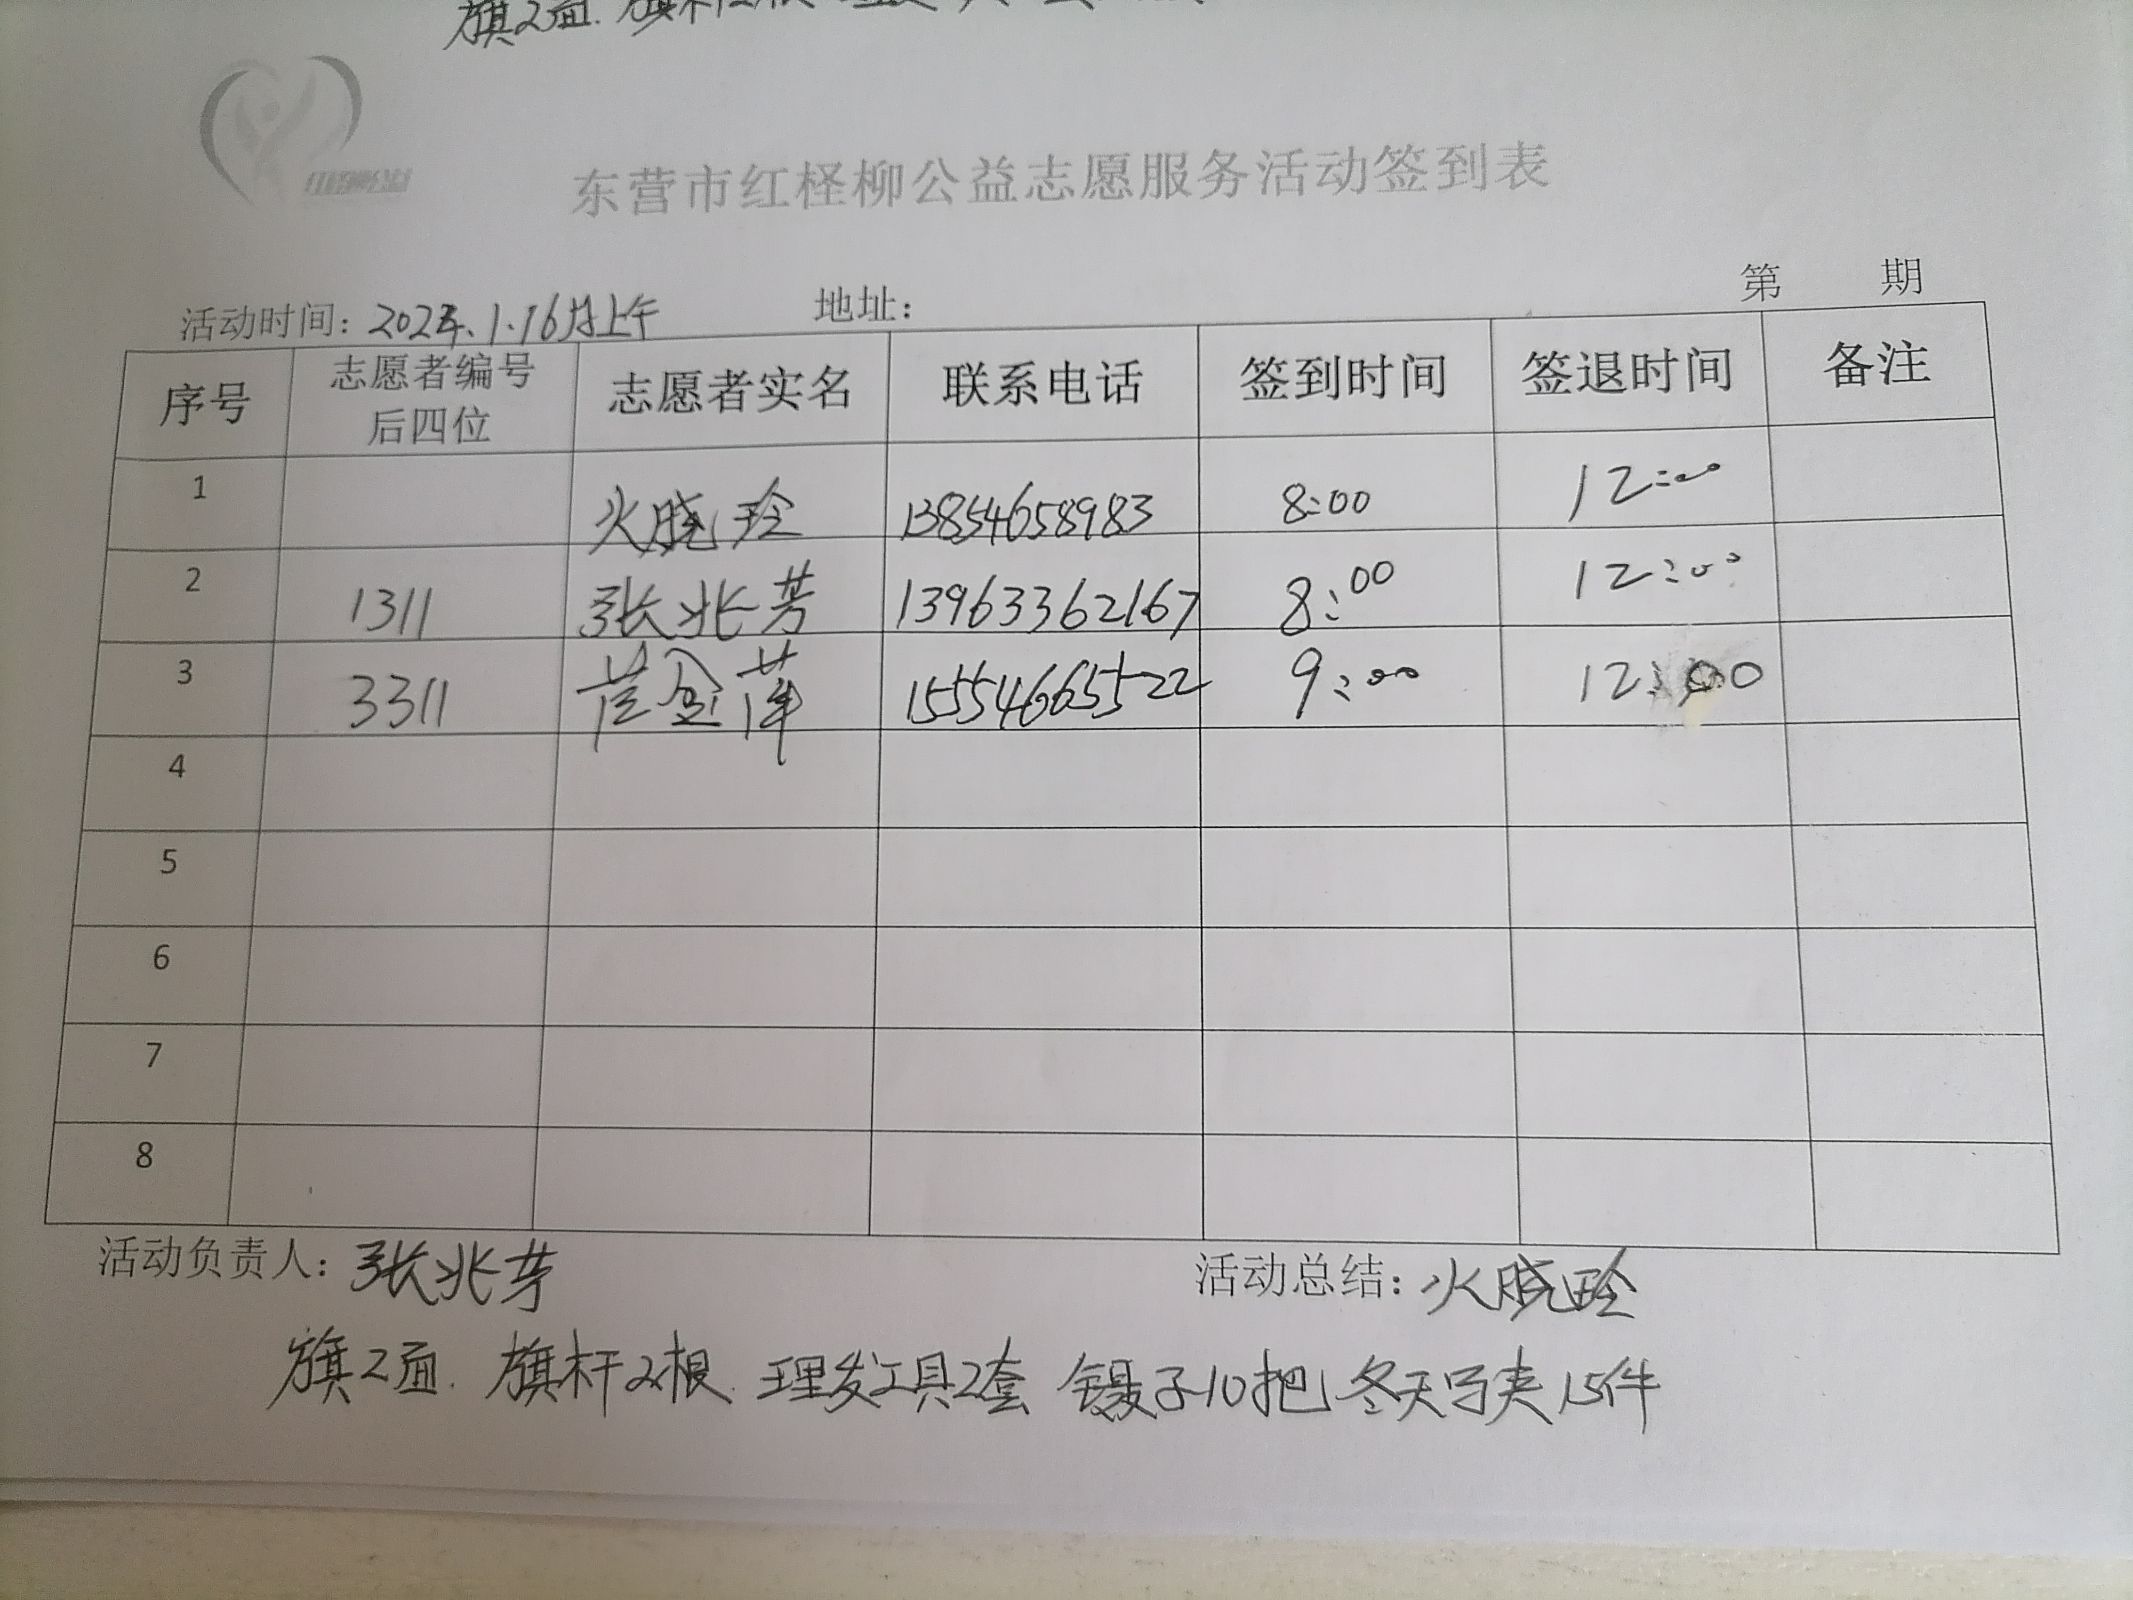 旗2面.
东营市红柽柳公益志愿服务活动签到表
第 期
活动时间: 2023.1.16日上午 地址:
序号 志愿者编号后四位 志愿者实名 联系电话 签到时间 签退时间 备注
1 火晓玲 13854658983 8:00 12:00
2 1311 张兆芳 13963362167 8:00 12:00
3 3311 金萍 15554665522 9:00 12:00
4
5
6
7
8
活动负责人: 张兆芳 活动总结: 火晓玲
旗2面. 旗杆2根. 理发工具2套 镊子10把 冬天马夹15件